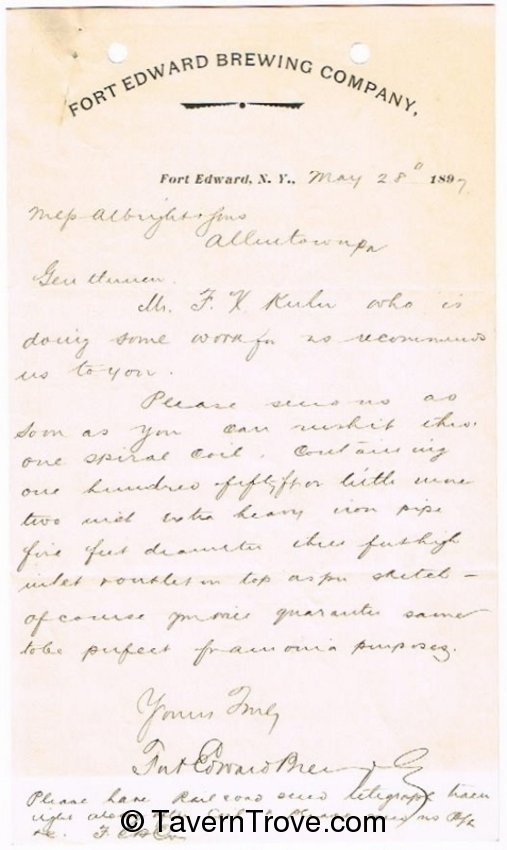 FORT EDWARD BREWING COMPANY,
Fort Edward, N. Y., May 28" 1897.
Mess Albright & Sons
Allentown Pa
Gentlemen.
Mr. F. X. Kuhn who is
doing some work for us recommends
us to you.
Please send us as
soon as you can rush it thro.
one spiral coil. Containing
one hundred fifty ft or little more
two inch extra heavy iron pipe
five feet diameter three feet high
inlet & outlet on top as per sketch -
of course you will guarantee same
to be perfect for amonia purposes.
Yours Truly
Fort Edward Brewing Co
Please have Rail road send telegraph tracer
right along
F. E. B. Co.
© TavernTrove.com